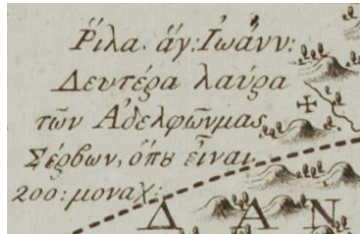 Ῥίλα. ἅγ: Ἰωάνν:
Δευτέρα λαύρα
τῶν Ἀδελφῶνμας
Σέρβων, ὅπȣ εἶναι
200: μοναχ:
Δ Α Ν